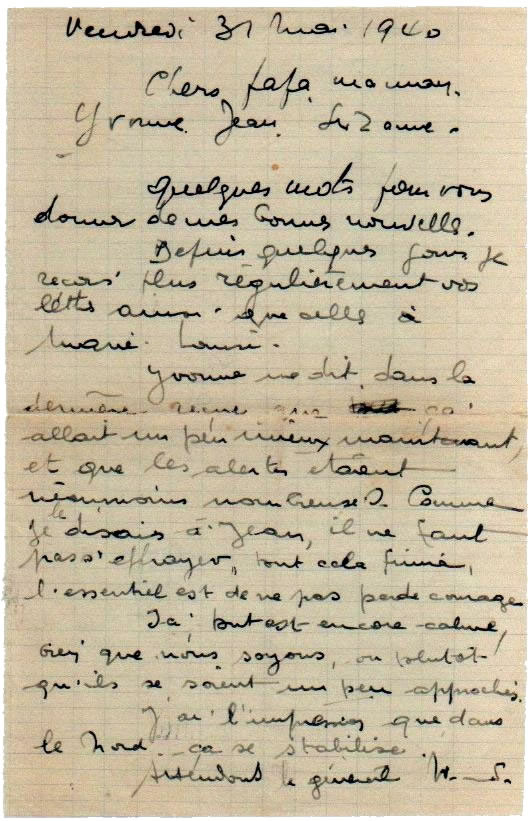 Vendredi 31 Mai 1940
Chers papa, maman,
Yvonne, Jean, Suzanne.
Quelques mots pour vous
donner de mes bonnes nouvelle.
Depuis quelques jours je
recois plus régulièrement vos
lettres ainsi que celle à
Marie-Louise.
Yvonne me dit, dans la
dernière recue que ça
allait un peu mieux maintenant,
et que les alertes étaient
néanmoins nombreuses. Comme
je le disais à Jean, il ne faut
pas s'effrayer, tout cela finira,
l'essentiel est de ne pas perdre courage
Ici, tout est encore calme,
que nous soyons, ou plutôt
qu'ils se soient un peu approchés.
J'ai l'impression que dans
le Nord ça se stabilise.
Attendons le général W